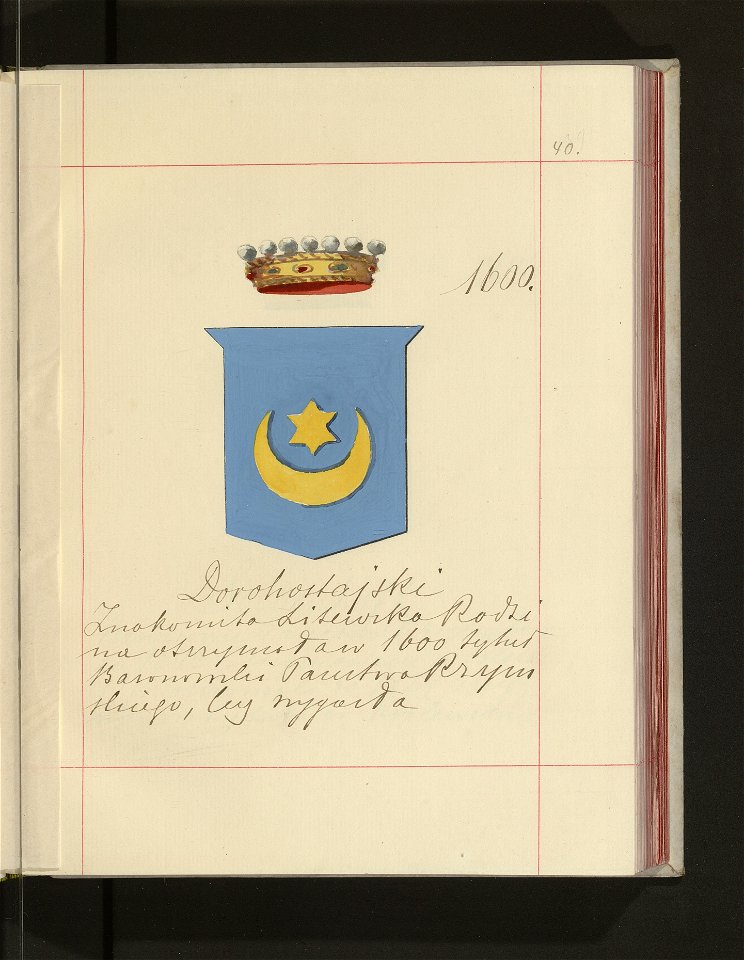 40.
1600.
Dorohostajski
Znakomita Litewska Rodzi
na otrzymała w 1600 tytuł
Baronowski Państwa Rzym
skiego, lecz wygasła